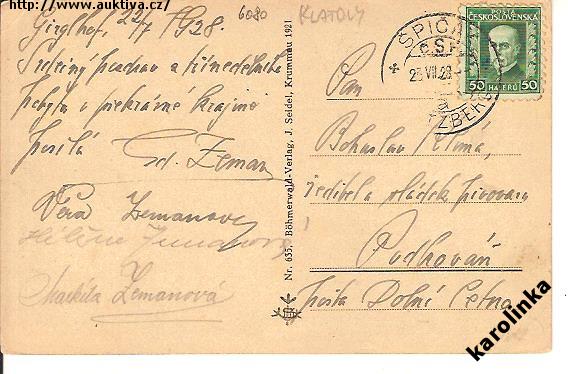 http://www.auktiva.cz/
6080 KLATOVY
Girglhof, 22/7 1928.
Srdečný pozdrav a třínedelního
Pobytu v překrásné krajině
posílá
Ed. Zeman
Věra Zemanova
Zemanova
Markéta Zemanová
Nr. 655. Böhmerwald-Verlag, J. Seidel, Krummau 1921
ŠPIČÁ
Č.S.R.
ZBERG
POŠTA
ČESKOSLOVENSKÁ
50 HALÉŘŮ 50
Pan
Bohuslav Klíma,
ředitel a sládek pivovaru
Podkováň
pošta Dolní Cetno.
karolinka